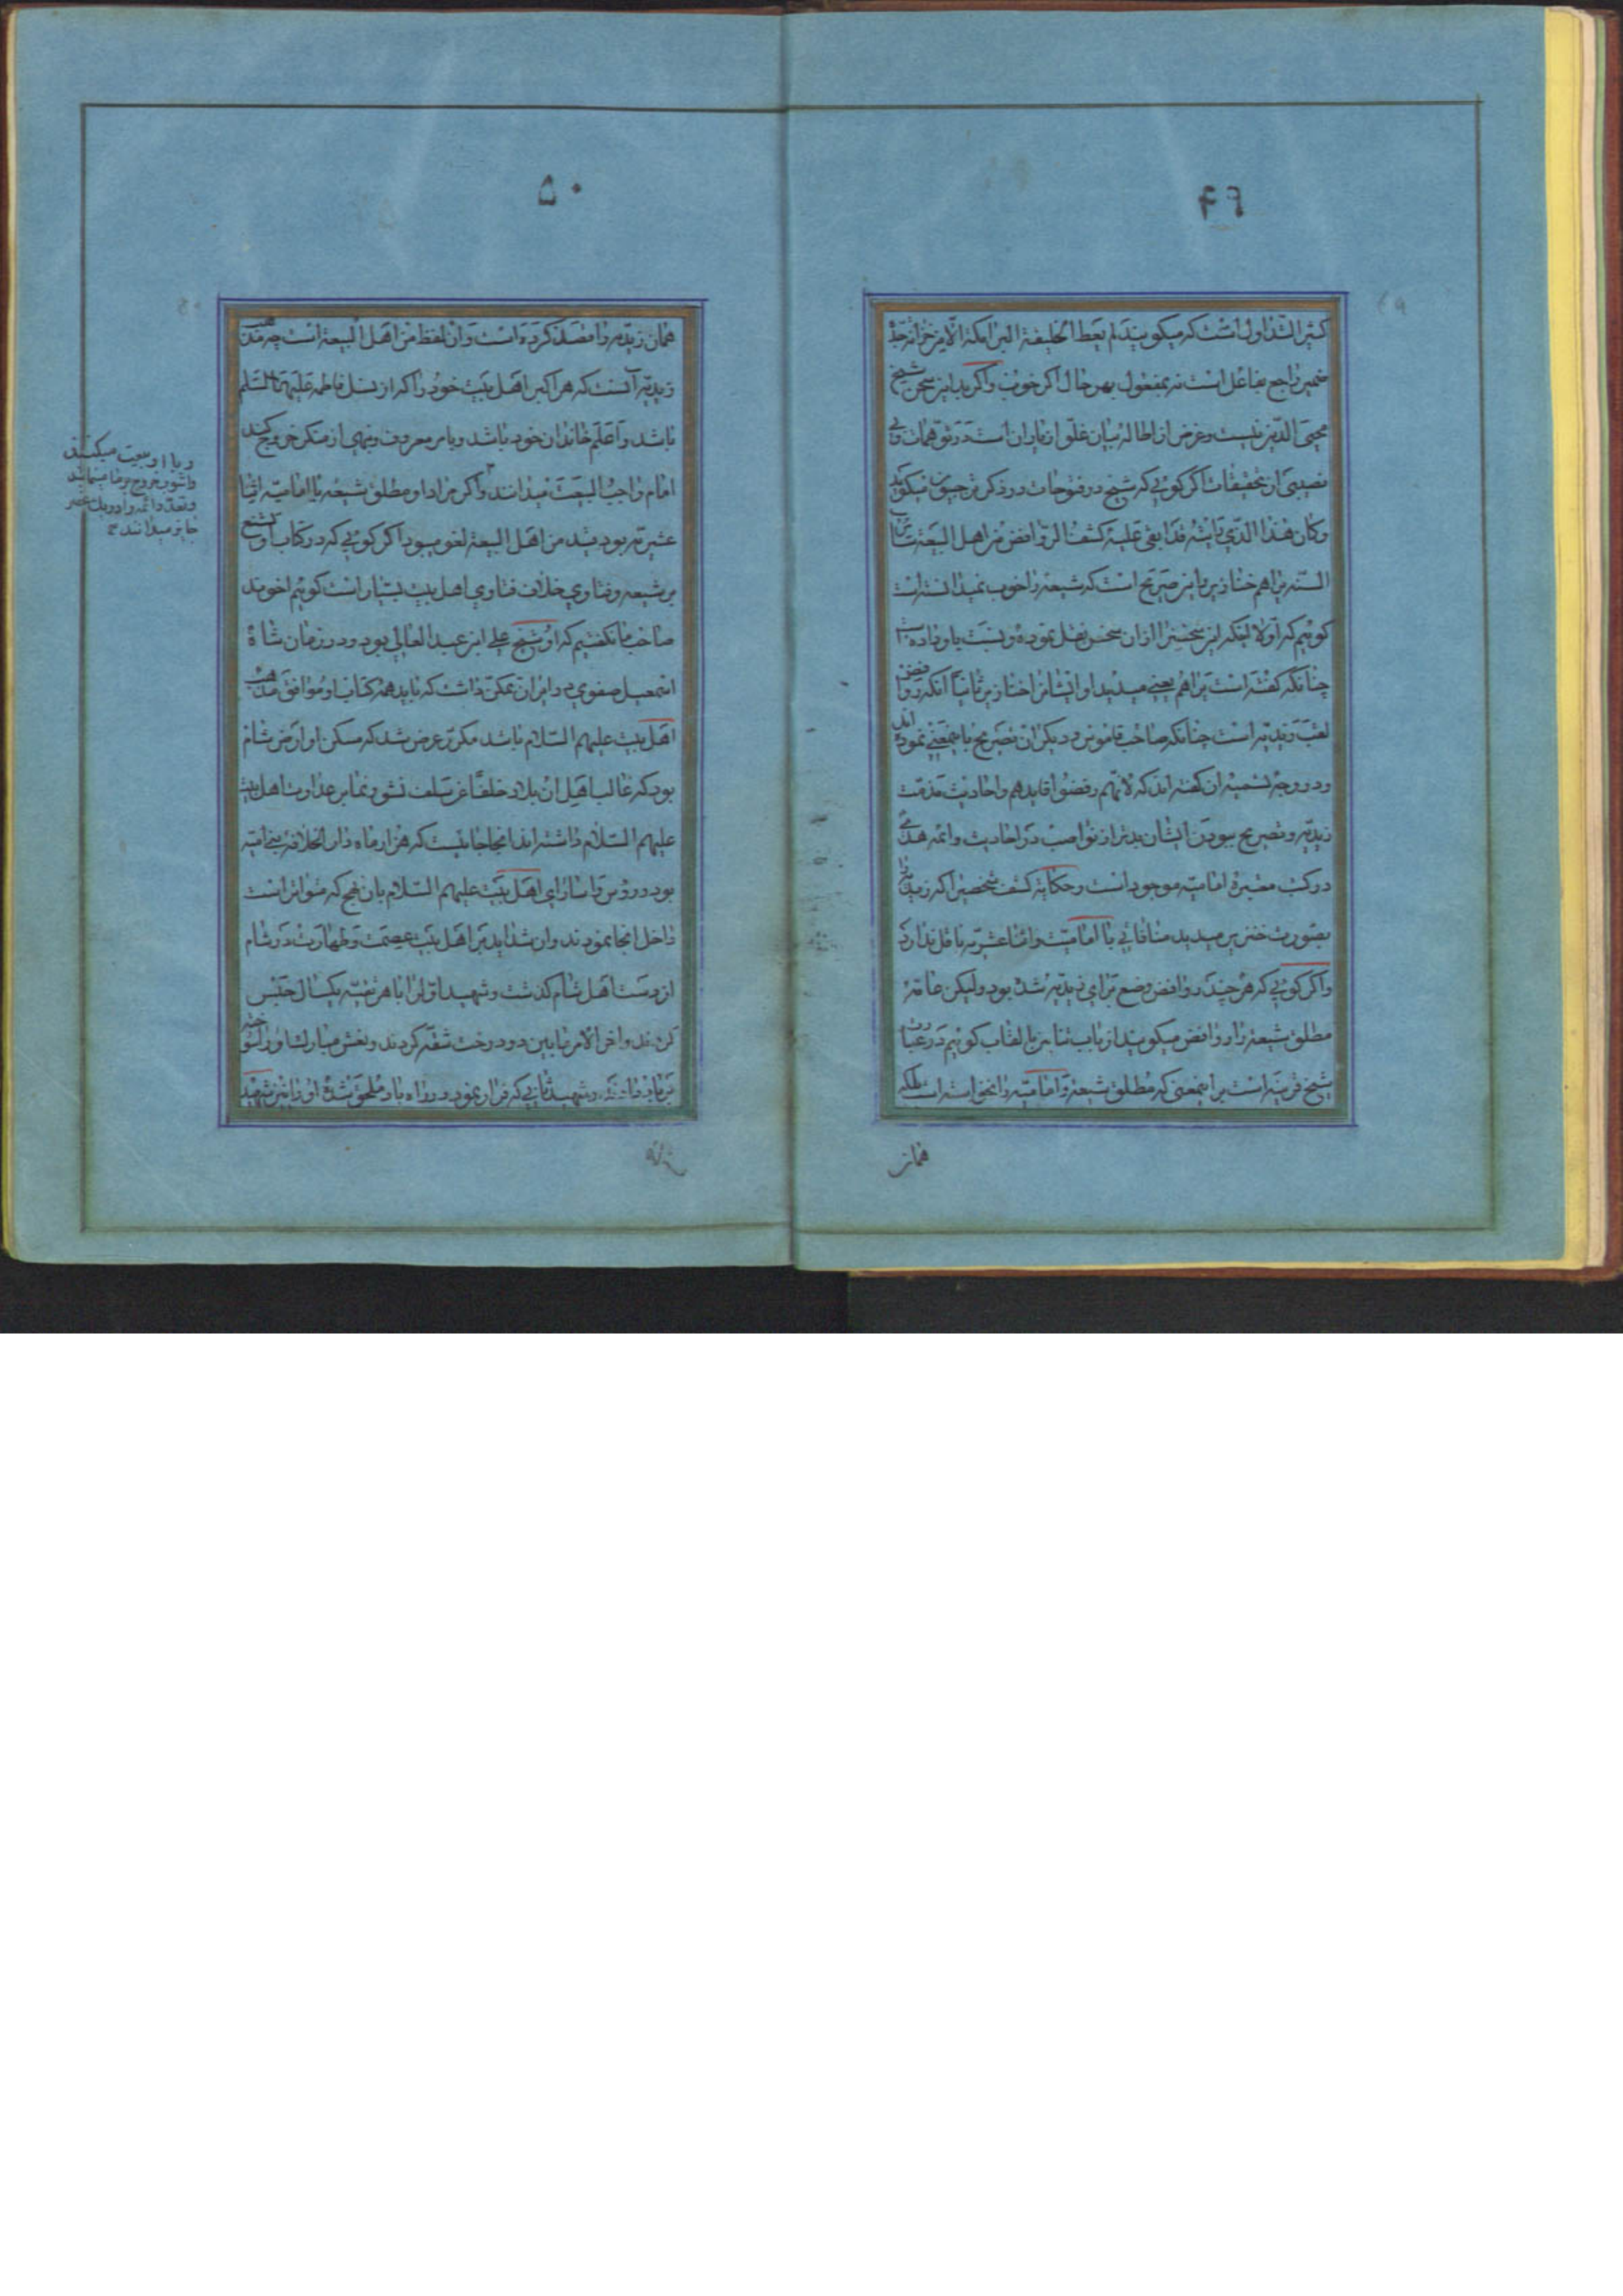 ۴۹
کثیر التداول است که میکویند لم یعط الخلیفة البرامکة الا من خزانة جده
ضمیر راجع بفاعل است نه بمفعول بهر حال اکر خوب واکر بد این سخن شیخ
محیی الدین نیست وغرض از اطالهٔ بیان غلو ازیاران است در توهمات وبی
نصیبی از تحقیقات اکر کوئی که شیخ در فتوحات در ذکر رجبیون میکوید
وکان هذا الذی رایته قد ابقی علیه کشف الروافض من اهل الشیعة سائر
السنة یراهم خنازیر واین صریح است که شیعه را خوب نمیدانسته است
کوئیم که اولا اینکه این سخن را ازان شخص نقل نموده ونسبت باو داده است
چنانکه کفته است یراهم یعنی میدید او ایشان را خنازیر ثانیا انکه روافض
لقب زیدیه است چنانکه صاحب قاموس ودیکران تصریح باینمعنی نموده اند
ودر وجه تسمیه ان کفته اند که لانهم رفضوا قایدهم واحادیث مذمت
زیدیه وتصریح ببودن ایشان بدتر از نواصب در احادیث وائمه هدی
در کتب معتبرهٔ امامیه موجود است وحکایة کشف شخصی را که زیدیه را
بصورت خنزیر میدید منافاتی با امامیت واثنا عشریه باقل ندارد
واکر کوئی که هر چند روافض وضع برای زیدیه شده بود ولیکن عامه
مطلق شیعه را روافض میکویند از باب تنابز بالقاب کوئیم در عبارت
شیخ قرینه است بر اینمعنی که مطلق شیعه وامامیه را نخواسته است بلکه
همان
۵۰
همان زیدیه را قصد کرده است وان لفظ من اهل الشیعة است چه مذهب
زیدیه انست که هر اکبر اهل بیت خود را که از نسل فاطمه علیها السلم
باشد واعلم خاندان خود باشد وبامر معروف ونهی از منکر خروج کند
امام واجب البیعت میدانند واکر مراد او مطلق شیعه یا امامیه اثنا
عشریه بودیند من اهل الشیعة لغو میبود اکر کوئی که در کتاب او تشنیع
بر شیعه وفتاوی خلاف فتاوی اهل بیت بسیار است کوئیم اخوند
صاحب ما نکفتیم که او شیخ علی ابن عبد العالی بود ودر زمان شاه
اسمعیل صفوی در ایران تمکن داشت که باید همه کتاب او موافق مذهب
اهل بیت علیهم السلام باشد مکرر عرض شد که مسکن او ارض شام
بود که غالب اهل ان بلاد خلفا عن سلف نشو ونما بر عداوت اهل بیت
علیهم السلام داشته اند انجا جائیست که هزار ماه دار الخلافه بنی امیه
بود ورؤس واسارای اهل بیت علیهم السلام بان نهج که متواتر است
داخل انجا نمودند وان شداید بر اهل بیت عصمت وطهارت در شام
از دست اهل شام کذشت وشهید اول را با هر تقیه یکسال حبس
کردند واخر الامر مابین دو درخت شقه کردند ونعش مبارک او را سوخته
بر باد دادند وشهید ثانی که فرار نمود در راه باو ملحق شده او را نیز شهید
وبا او بیعت میکنند
واشتراط خروج مینمایند
وتعدد ائمه را در یک عصر
جایز میدانند